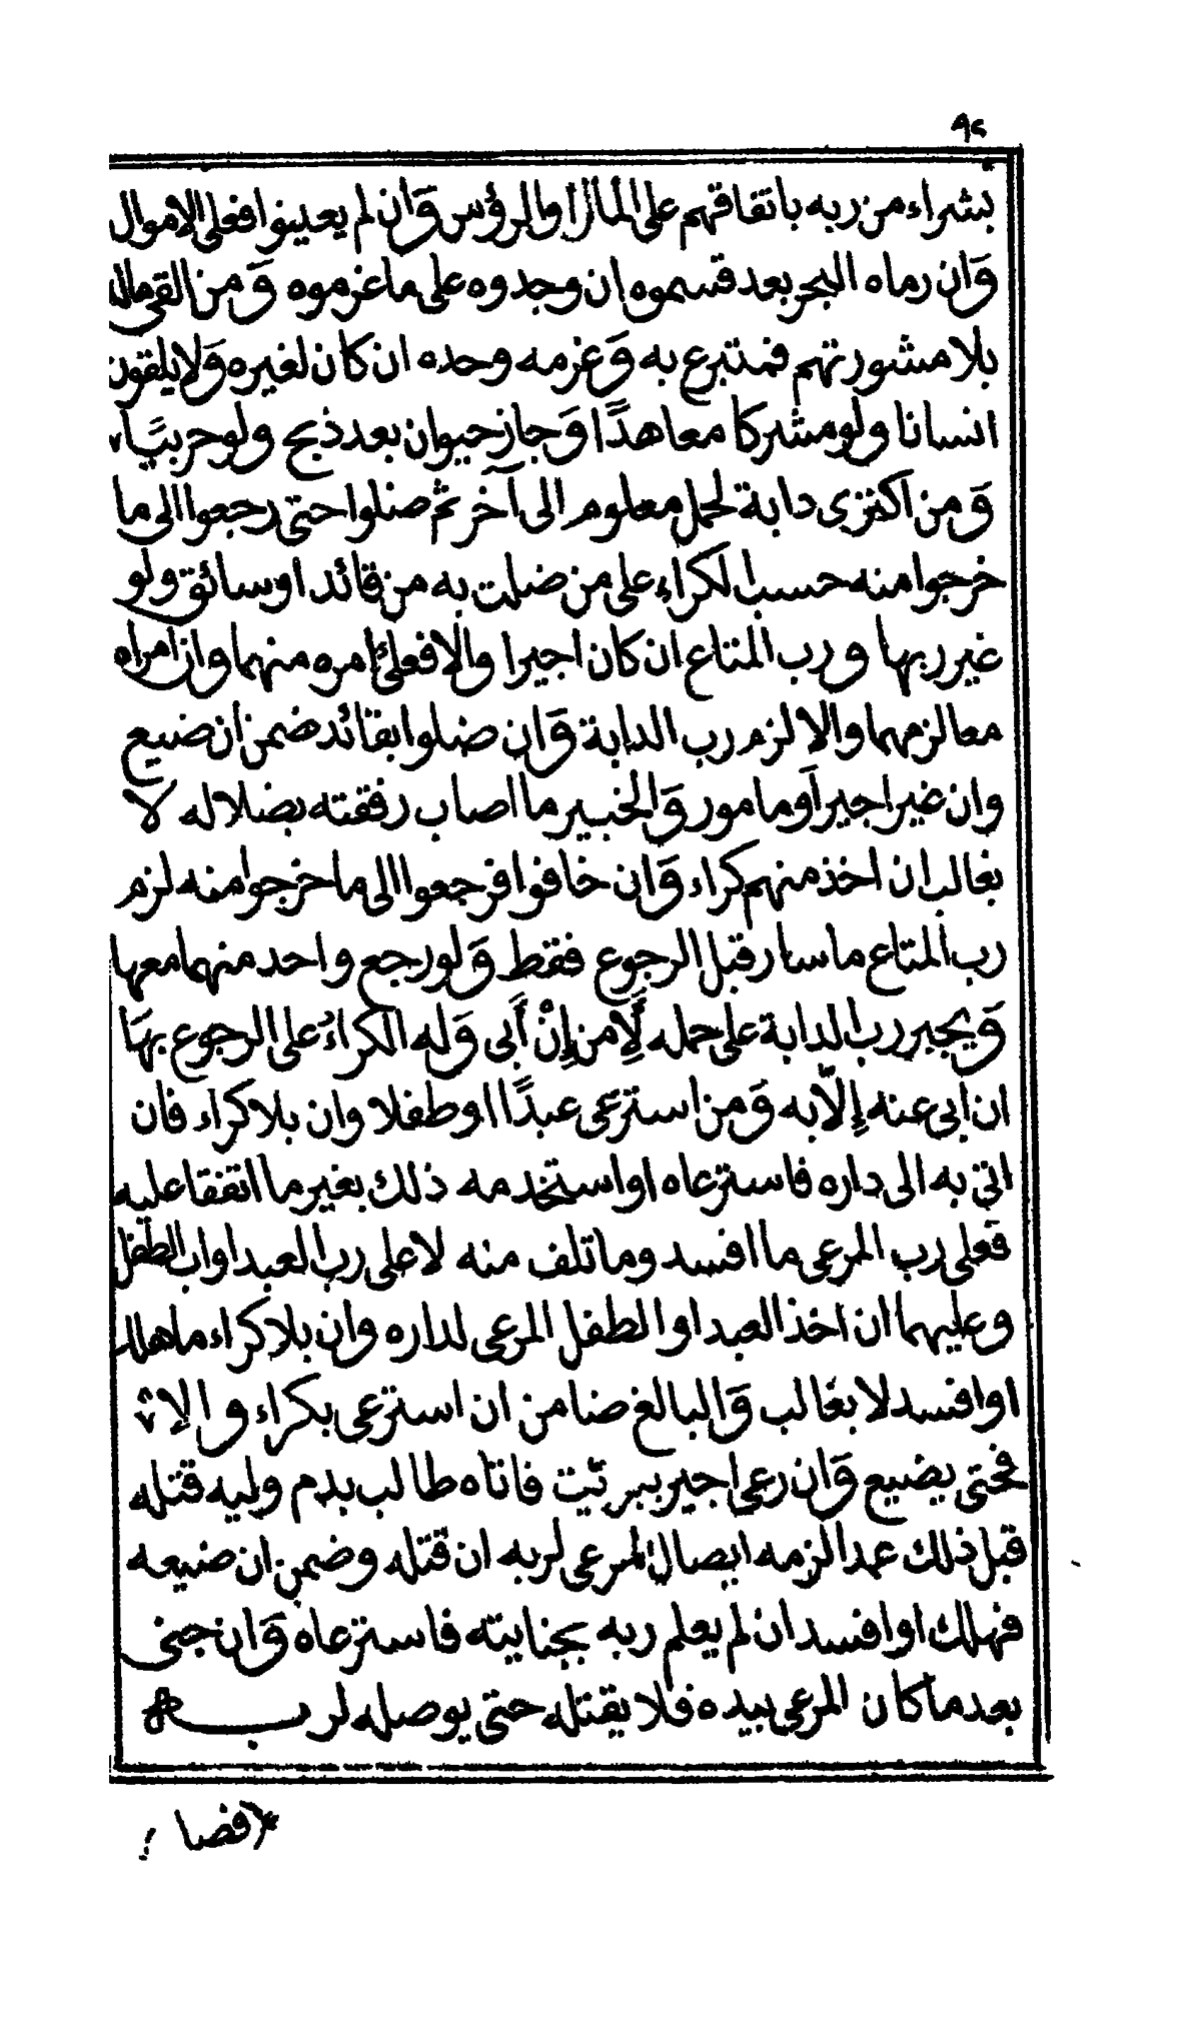 ٩٢
بشراء من ربه باتفاقهم على المال او الرؤس وَان لم يعينوا فعلى الاموال
وَان رماه البحر بعد قسموه ان وجدوه على ما غرموه وَمن القى ماله
بلا مشورتهم فمتبرع به وَغرمه وحده ان كان لغيره وَلا يلقون
انسانا ولو مشركا معاهدًا وَجاز حيوان بعد ذبح ولو حربيَّا
وَمن اكترى دابة لحمل معلوم الى آخر ثم ضلوا حتى رجعوا الى ما
خرجوا منه حسب الكراء على من ضلت به من قائد او سائق ولو
غير ربها ورب المتاع ان كان اجيرا والا فعلى امره منهما وان امراه
معا لزمهما والا لزم رب الدابة وَان ضلوا بقائد ضمن ان ضيع
وان غير اجير أو مامور وَالخبير ما اصاب رفقته بضلاله لا
بغالب ان اخذ منهم كراء وَان خافوا فرجعوا الى ما خرجوا منه لزم
رب المتاع ما سار قبل الرجوع فقط وَلو رجع واحد منهما معها
وَيجبر رب الدابة على حمله لَإِمن إِنْ أَبى وَله الكراءُ على الرجوع بهَا
ان ابى عنه إِلّا به وَمن استرعى عبدًا او طفلا وان بلا كراء فان
اتى به الى داره فاسترعاه او استخدمه ذلك بغير ما اتفقا عليه
فعلى رب المرعى ما افسد وما تلف منه لا على رب العبد او اب الطفل
وعليهما ان اخذ العبد او الطفل المرعى لداره وان بلا كراء ما هلك
او افسد لا بغالب وَالبالغ ضامن ان استرعى بكراء والا
فحتى يضيع وَان رعى اجير ببرئيت فاتاه طالب بدم وليه قتله
قبل ذلك عمدا لزمه ايصال المرعى لربه ان قتله وضمن ان ضيعه
فهلك او افسد ان لم يعلم ربه بجنايته فاسترعاه وَان جنى
بعد ما كان المرعى بيده فلا يقتله حتى يوصله لربه
فضا